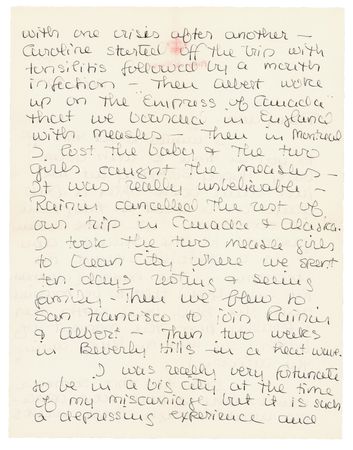 with one crises after another –
Caroline started off the trip with
tonsilitis followed by a mouth
infection – Then Albert woke
up on the "Empress of Canada"
that we boarded in England
with measles – Then in Montreal
I lost the baby & the two
girls caught the measles –
It was really unbelievable –
Rainier cancelled the rest of
our trip in Canada & Alaska.
I took the two measle girls
to Ocean City where we spent
ten days resting & seeing
family – Then we flew to
San Francisco to join Rainier
& Albert – Then two weeks
in Beverly Hills – in a heat wave.
I was really very fortunate
to be in a big city at the time
of my miscarriage but it is such
a depressing experience and